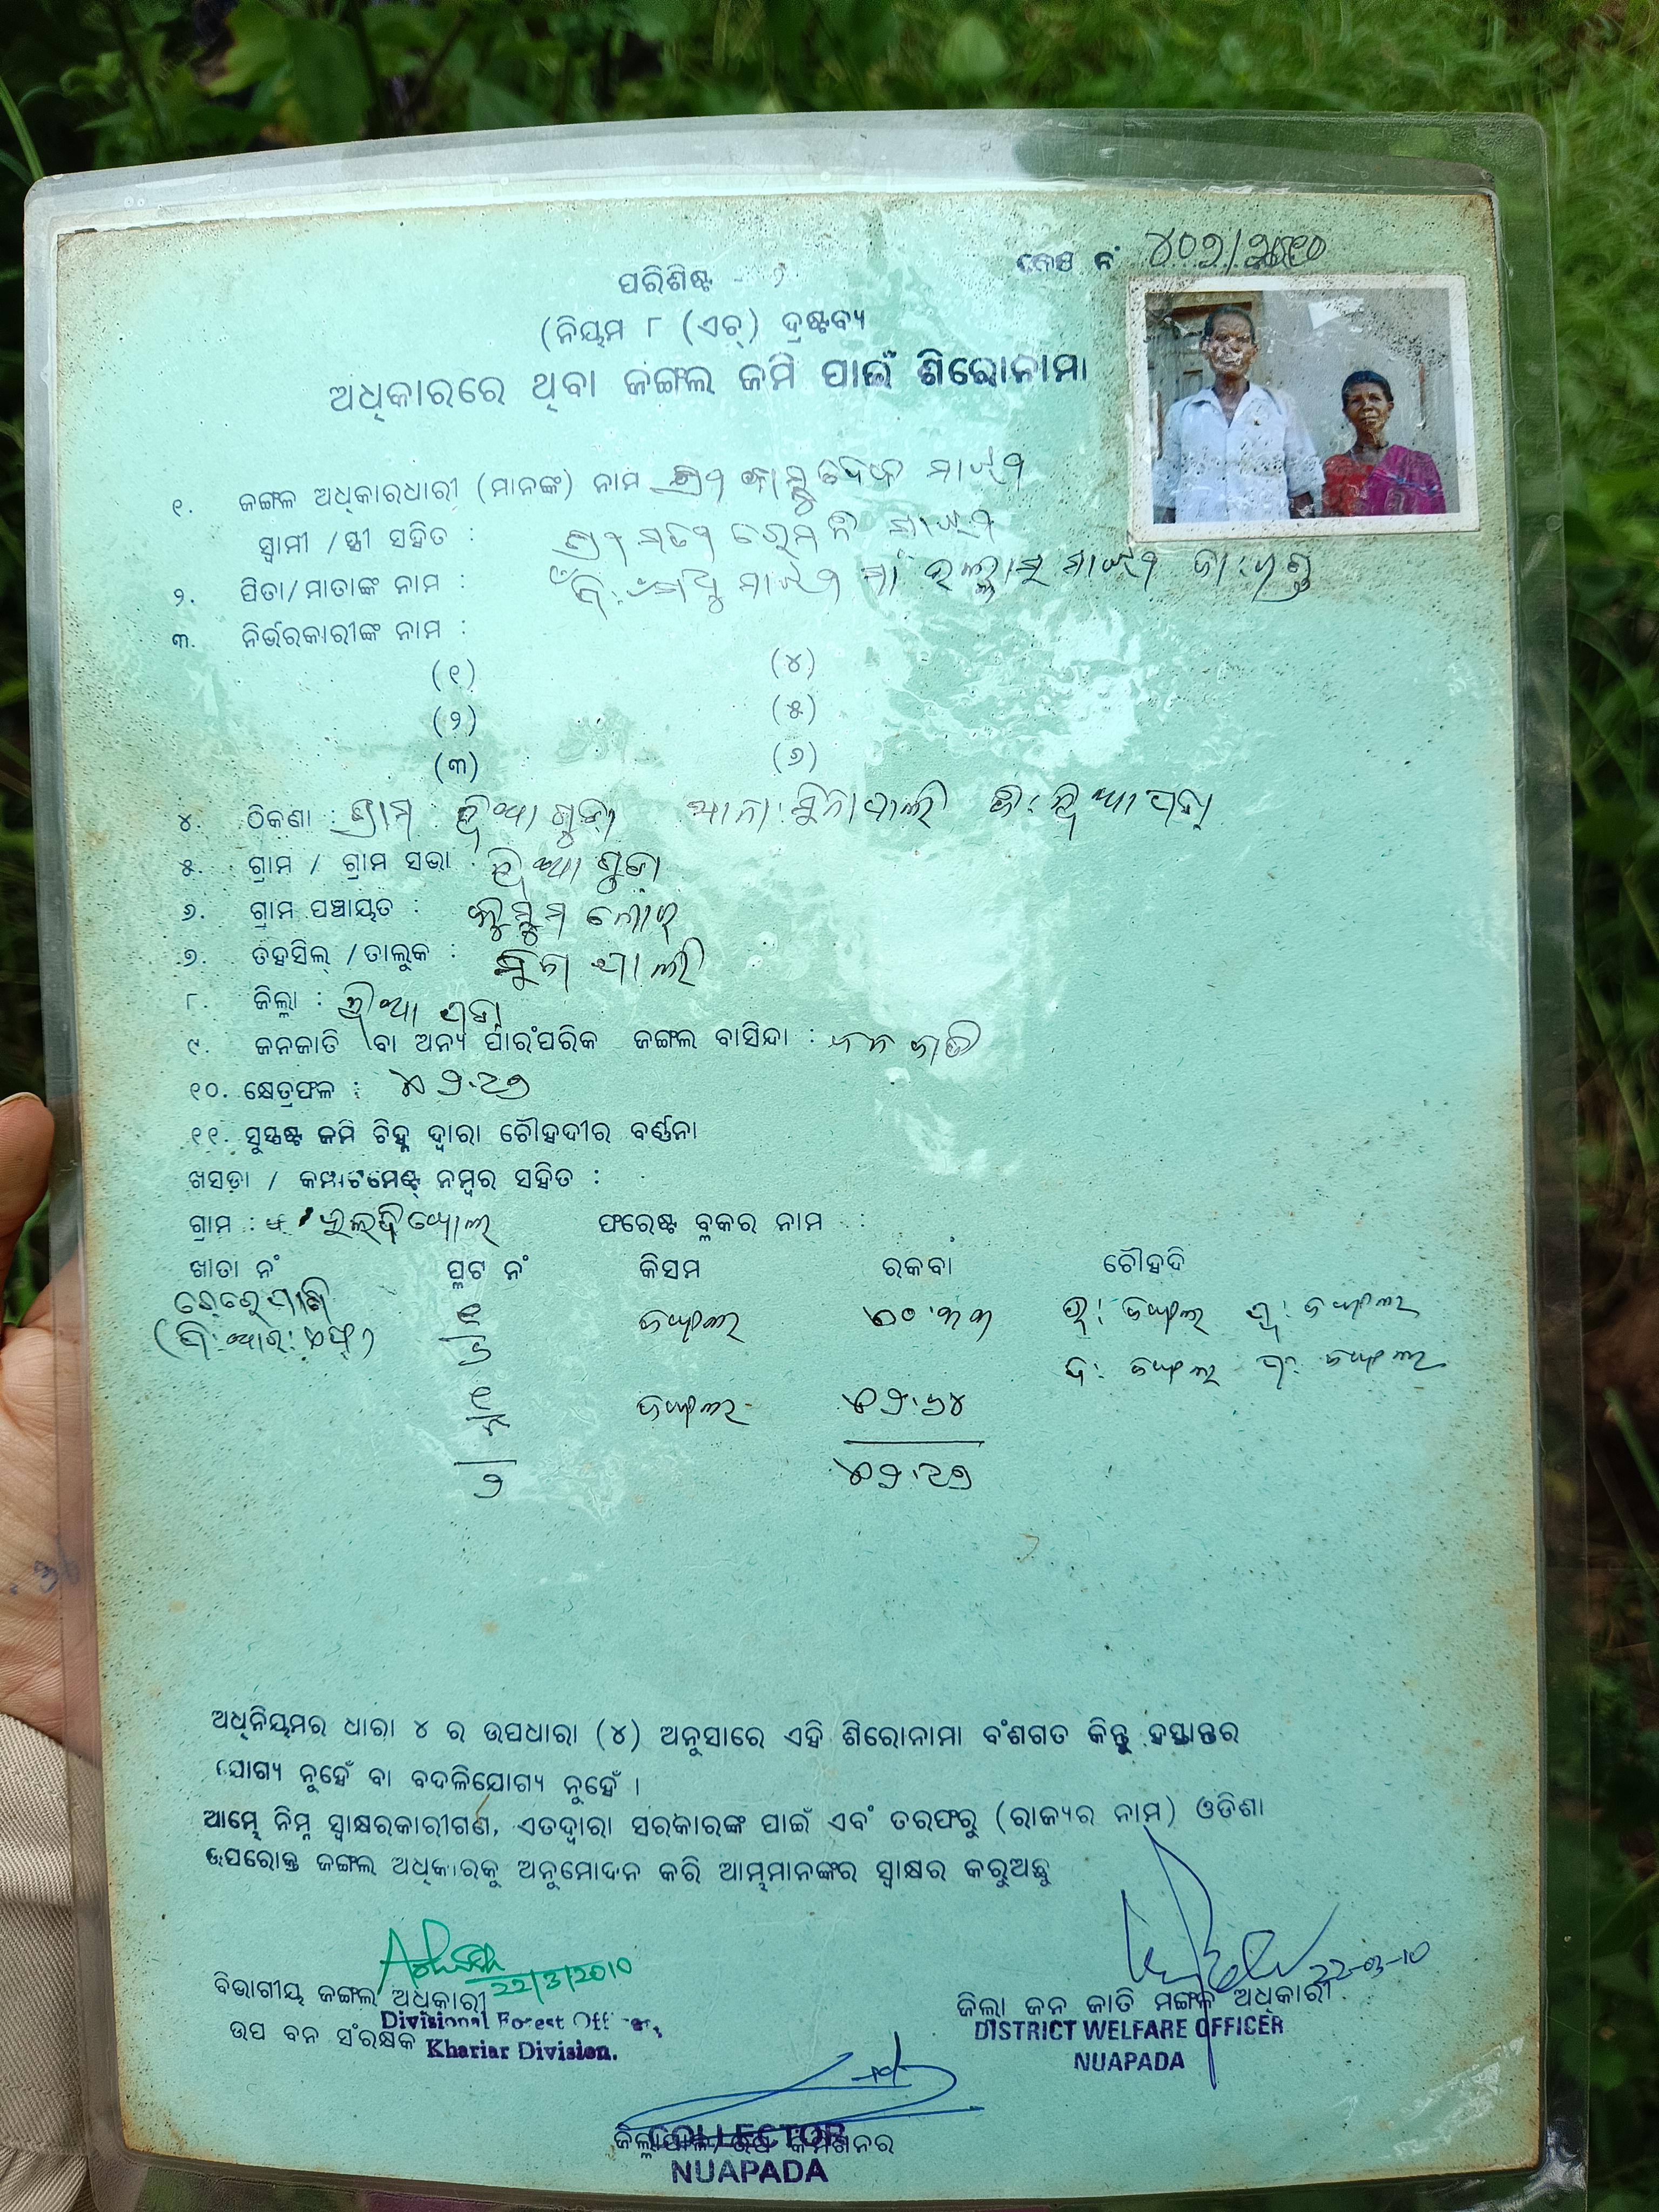 ପରିଶିଷ୍ଟ - ୨
କେଶ ନଂ ୪୦୨/୨୦୧୦
(ନିୟମ ୮ (ଏଚ୍) ଦ୍ରଷ୍ଟବ୍ୟ
ଅଧିକାରରେ ଥିବା ଜଙ୍ଗଲ ଜମି ପାଇଁ ଶିରୋନାମା
୧. ଜଙ୍ଗଳ ଅଧିକାରଧାରୀ (ମାନଙ୍କ) ନାମ ଶ୍ରୀ ମାଝୀ
ସ୍ଵାମୀ / ସ୍ତ୍ରୀ ସହିତ : ଶ୍ରୀମତୀ ମାଝୀ
୨. ପିତା/ମାତାଙ୍କ ନାମ : ମାଝୀ ମାଝୀ
୩. ନିର୍ଭରକାରୀଙ୍କ ନାମ :
(୧) (୪)
(୨) (୫)
(୩) (୬)
୪. ଠିକଣା : ଗ୍ରାମ ନୂଆଗୁଡା ଥାନା : ସିନାପାଲି ଜି: ନୂଆପଡା
୫. ଗ୍ରାମ / ଗ୍ରାମ ସଭା : ନୂଆଗୁଡା
୬. ଗ୍ରାମ ପଞ୍ଚାୟତ :
୭. ତହସିଲ୍ /ତାଲୁକ : ସିନାପାଲି
୮. ଜିଲ୍ଲା : ନୂଆପଡା
୯. ଜନଜାତି ବା ଅନ୍ୟ ପାରଂପରିକ ଜଙ୍ଗଲ ବାସିନ୍ଦା : ଜନଜାତି
୧୦. କ୍ଷେତ୍ରଫଳ : ୨.୯୭
୧୧. ସୁସ୍ପଷ୍ଟ ଜମି ଚିହ୍ନ ଦ୍ଵାରା ଚୌହଦୀର ବର୍ଣ୍ଣନା
ଖସଡ଼ା / କମ୍ପାଟମେଣ୍ଟ୍ ନମ୍ବର ସହିତ :
ଗ୍ରାମ : ଫରେଷ୍ଟ ବ୍ଳକର ନାମ :
ଖାତା ନଂ ପ୍ଲଟ ନଂ କିସମ ରକବା ଚୌହଦି
୧ ଜଙ୍ଗଲ ୦.୩୩ ଉ: ଜଙ୍ଗଲ ପୂ: ଜଙ୍ଗଲ
୬ ଦ: ଜଙ୍ଗଲ ପ: ଜଙ୍ଗଲ
୧ ଜଙ୍ଗଲ ୨.୬୪
୨ ୨.୯୭
ଅଧିନିୟମର ଧାରା ୪ ର ଉପଧାରା (୪) ଅନୁସାରେ ଏହି ଶିରୋନାମା ବଂଶଗତ କିନ୍ତୁ ହସ୍ତାନ୍ତର
ଯୋଗ୍ୟ ନୁହେଁ ବା ବଦଳିଯୋଗ୍ୟ ନୁହେଁ ।
ଆମ୍ଭେ ନିମ୍ନ ସ୍ଵାକ୍ଷରକାରୀଗଣ, ଏତଦ୍ଵାରା ସରକାରଙ୍କ ପାଇଁ ଏବଂ ତରଫରୁ (ରାଜ୍ୟର ନାମ) ଓଡିଶା
ଉପରୋକ୍ତ ଜଙ୍ଗଲ ଅଧିକାରକୁ ଅନୁମୋଦନ କରି ଆମ୍ଭମାନଙ୍କର ସ୍ଵାକ୍ଷର କରୁଅଛୁ
22/3/2010
22-03-10
ବିଭାଗୀୟ ଜଙ୍ଗଲ ଅଧିକାରୀ
Divisional Forest Officer,
ଉପ ବନ ସଂରକ୍ଷକ
Khariar Division.
ଜିଲ୍ଲା ଜନ ଜାତି ମଙ୍ଗଳ ଅଧିକାରୀ
DISTRICT WELFARE OFFICER
NUAPADA
COLLECTOR
ଜିଲ୍ଲାପାଳ/ଉପ କମିଶନର
NUAPADA